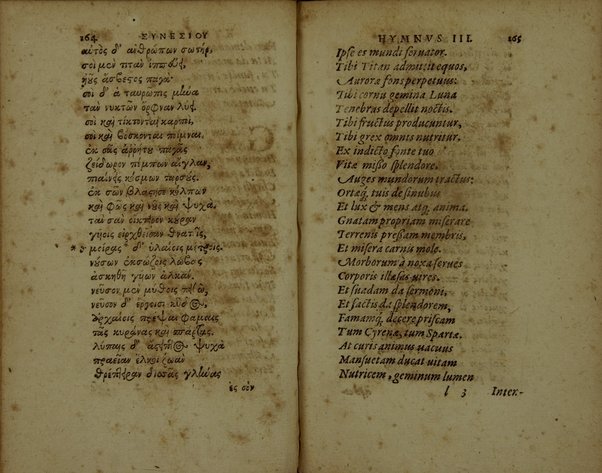 164 ΣΥΝΕΣΙΟΥ
αὐτὸς δ' αἰθρώπων σωτήρ,
σοὶ μὲν τιτὰν ἱππεύει,
ἠοῦς ἄσβεστος παγά·
σοὶ δ' ἁ ταυρῶπις μήνα
τὰν νυκτῶν ὄρφναν λύει.
σοὶ καὶ τίκτονται καρποὶ,
σοὶ καὶ βόσκονται ποῖμναι.
ἐκ σᾶς ἀῤῥήτου παγᾶς
ζείδωρον πέμπων αἴγλαν,
πιαίνεις κόσμων ταρσούς.
ἐκ σῶν βλάστησε κόλπων
καὶ φῶς καὶ νοῦς καὶ ψυχά.
τὰν σὰν οἴκτειρον κούραν
γυίοις εἱρχθεῖσαν θνατοῖς,
* μοίρας δ' ὑλαίαις μέτροις.
νόσων ἐκσώζοις λώβας
ἀσκηθῆ γυίων ἀλκάν.
νεῦσον μὲν μύθοις πειθὼ,
νεῦσον δ' ἔργοισι κῦδος,
ἀρχαίαις πρέψαι φάμαις
τὰς κυράνας καὶ σπάρτας.
λύπαις δ' ἀστιβὴς ψυχὰ
πραεῖαν ἕλκοι ζωὰν
θρέπτειραν δισσὰς γλήνας
ἐς σὸν
HYMNVS III. 165
Ipse es mundi seruator.
Tibi Titan admittit equos,
Auroræ fons perpetuus:
Tibi cornu gemina Luna
Tenebras depellit noctis.
Tibi fructus producuntur,
Tibi grex omnis nutritur.
Ex indicto fonte tuo
Vitæ misso splendore.
Auges mundorum tractus:
Ortaq́; tuis de sinubus
Et lux & mens atq; anima.
Gnatam propriam miserare
Terrenis pressam membris,
Et misera carnis mole.
Morborum à noxa serues
Corporis illæsas vires.
Et suadam da sermoni,
Et factis da splendorem,
Famamq́; decere priscam
Tum Cyrenæ, tum Spartæ.
At curis animus vacuus
Mansuetam ducat vitam
Nutricem, geminum lumen
l 3 Inter-